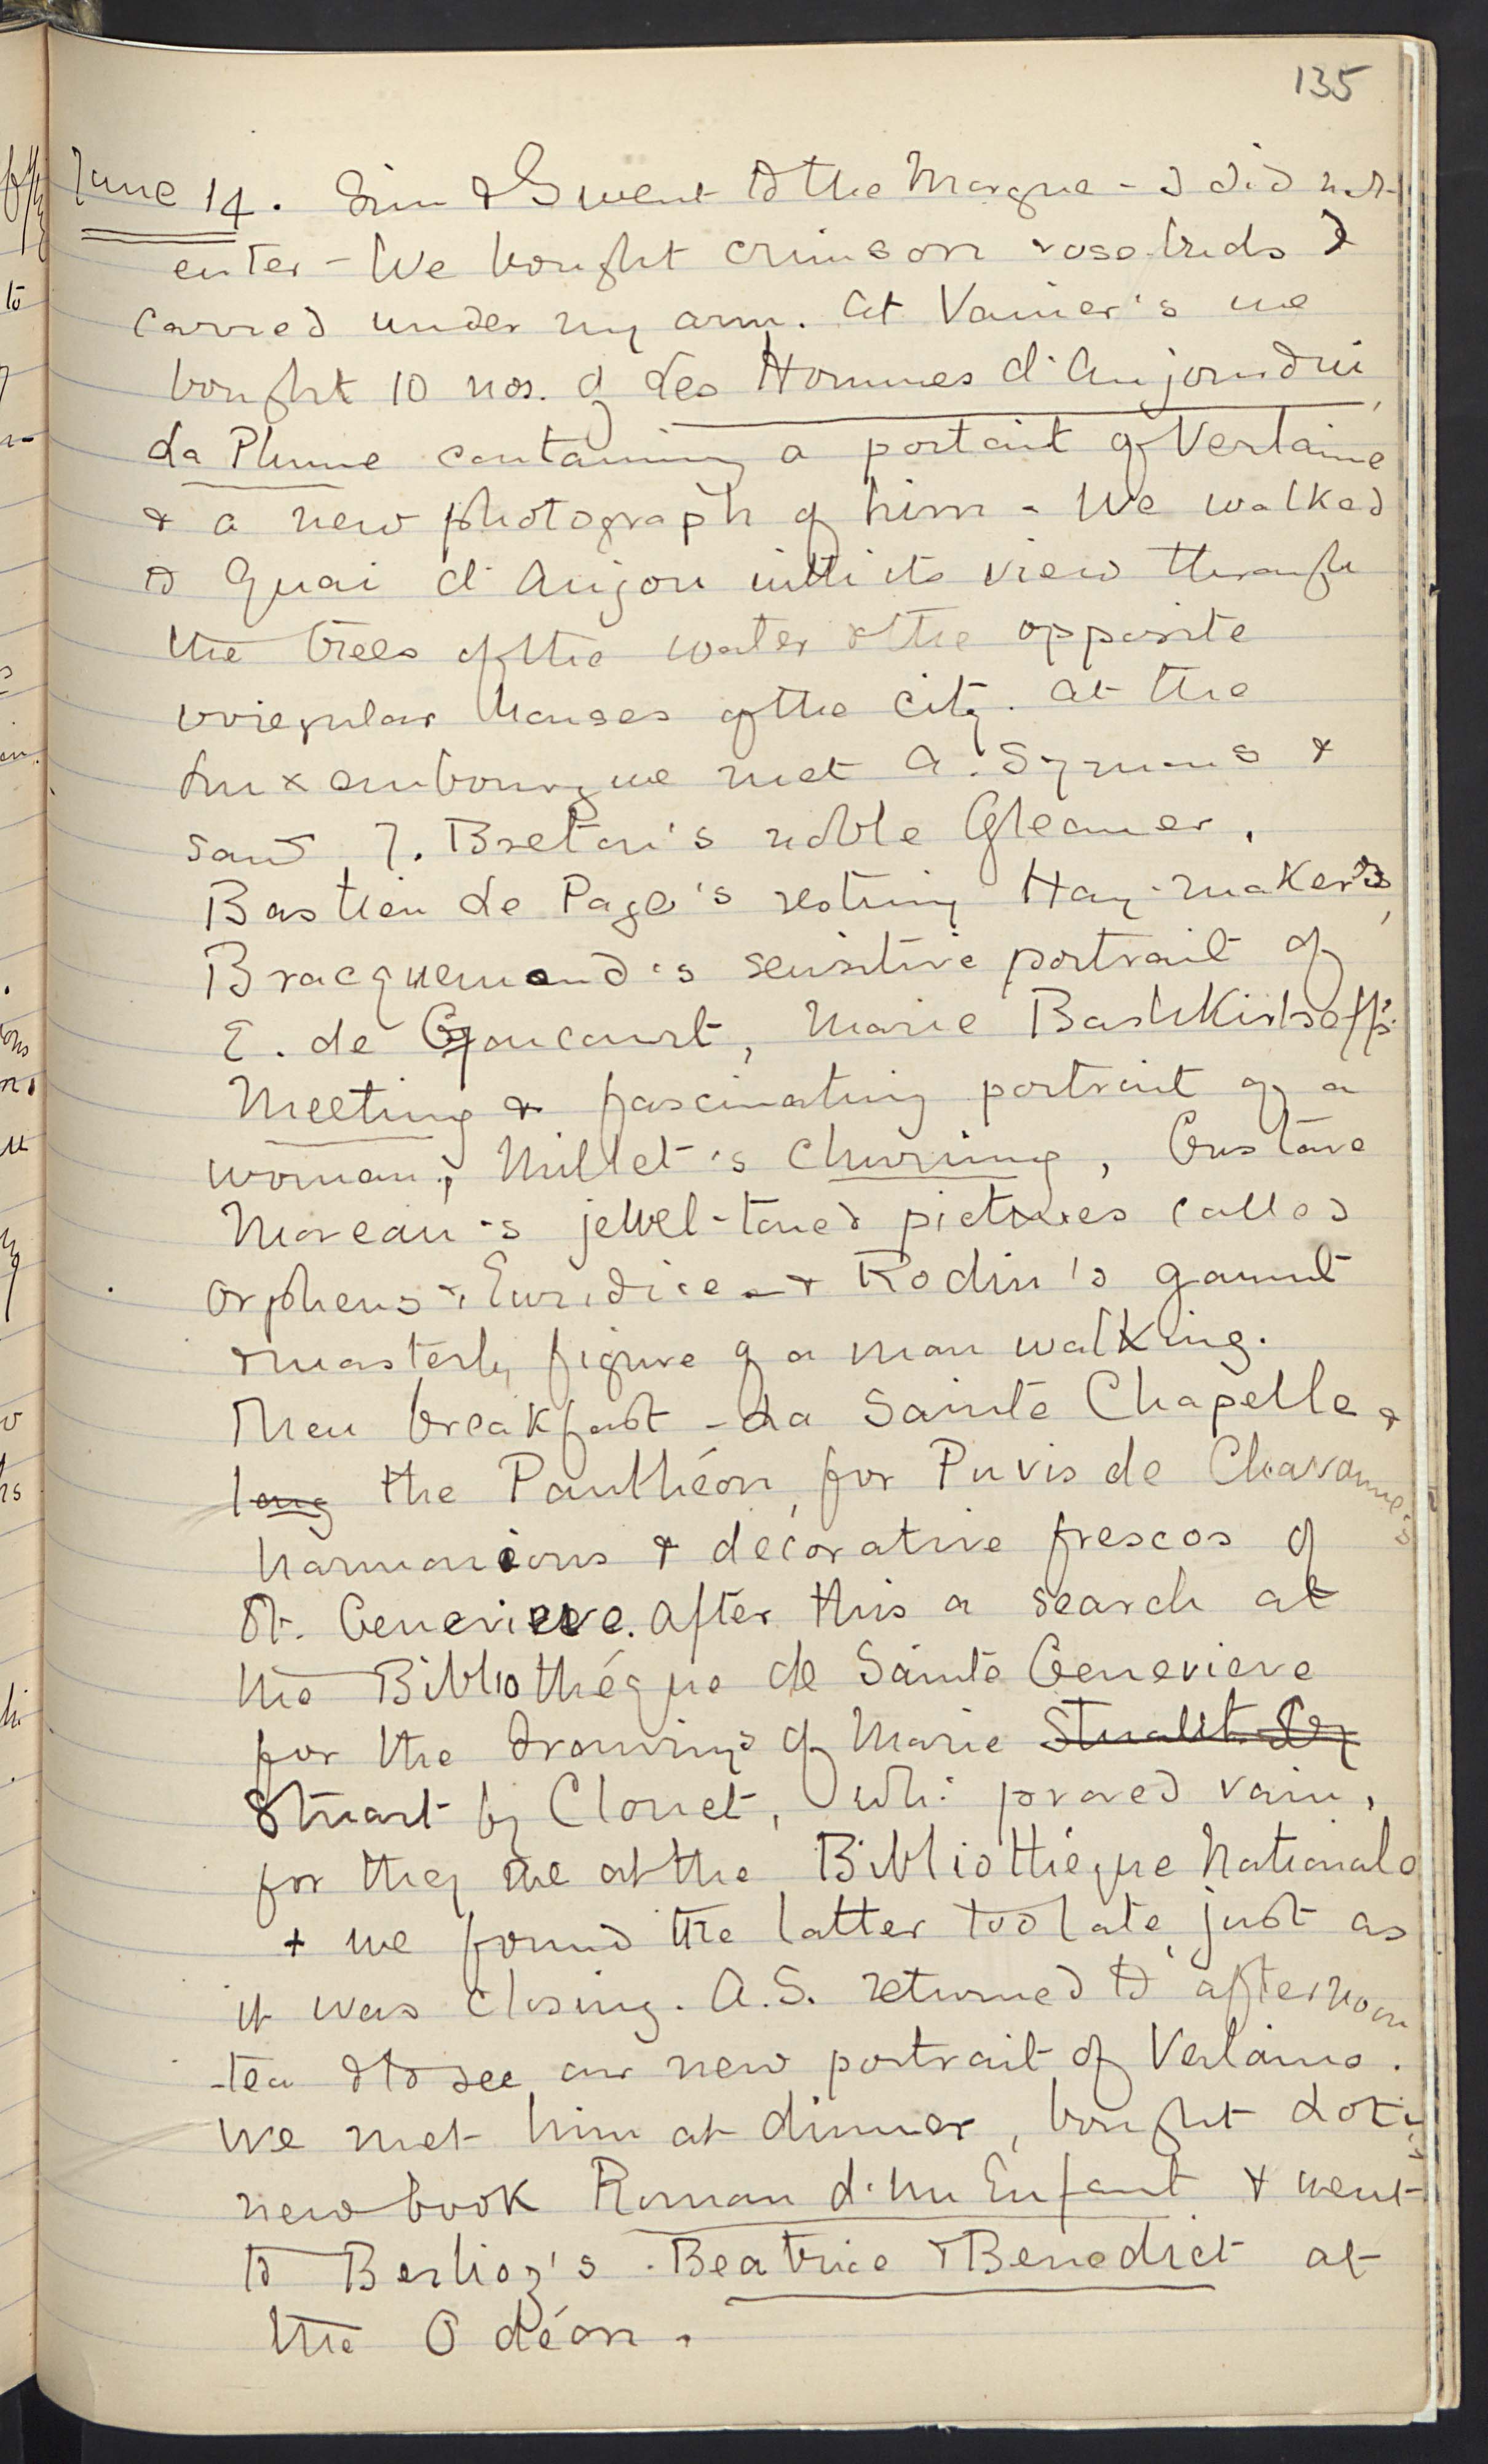 135
June 14. Sim & I went to the Morgue - I did not
enter - We bought crimson rosebuds I
carried under my arm. At Vanier's we
bought 10 nos. of Les Hommes d'Aujourdui,
La Plume containing a portait of Verlaine
& a new photograph of him - We walked
to Quai d'Anjou with its view through
the trees of the water & the opposite
irregular houses of the city. At the
Luxembourg we met A. Symons &
saw J. Breton's noble Gleaner,
Bastien Le Page's resting Hay-makers,
Bracquemond's sensitive portrait of
E. de Goncourt, Marie Bashkirtseff's
Meeting & fascinating portrait of a
woman, Millet's Churning, Gustave
Moreau's jewel-toned pictures called
Orpheus & Euridice - & Rodin's gaunt
& masterly figure of a man walking.
Then breakfast - La Sainte Chapelle &
long the Panthéon, for Puvis de Chavannes's
harmonious & decorative frescos of
St. Genevieve. After this a search at
the Bibliothéque de Sainte Genevieve
for the drawings of Marie
Stuart by Clouet, wh: proved vain,
for they are at the Bibliothéque Nationale
& we found the latter too late, just as
it was closing. A.S. returned to afternoon
tea & to see our new portrait of Verlaine.
We met him at dinner, bought Loti's
new book Roman d'un Enfant & went
to Berlioz's Beatrice & Benedict at
the Odéon.